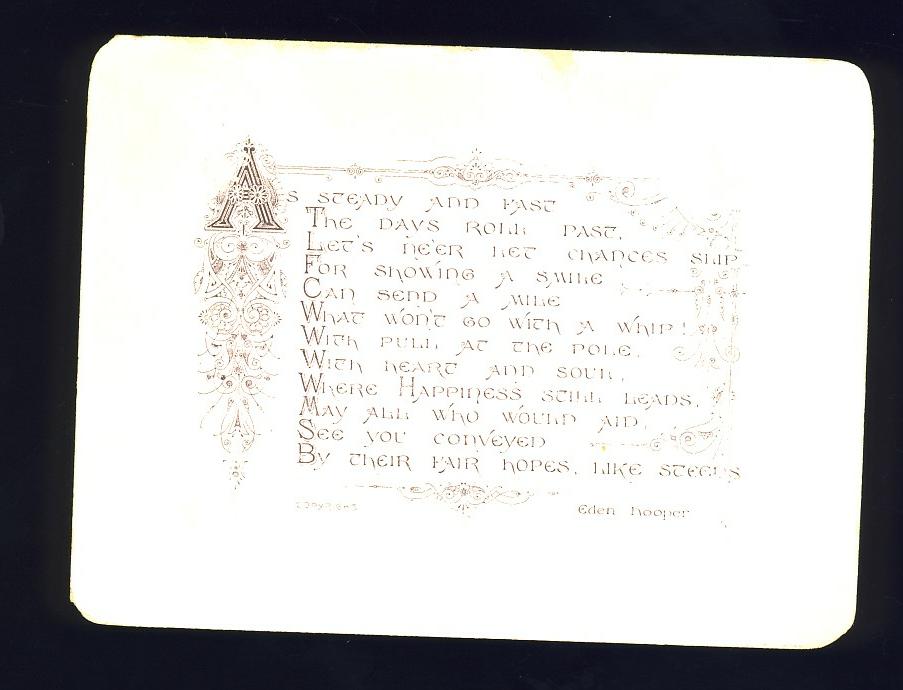 As steady and fast
The days roll past,
Let's ne'er let chances slip
For showing a smile
Can send a mile
What won't go with a whip!
With pull at the pole,
With heart and soul,
Where Happiness still leads,
May all who would aid,
See you conveyed
By their fair hopes, like steeds
Copyright
Eden Hooper